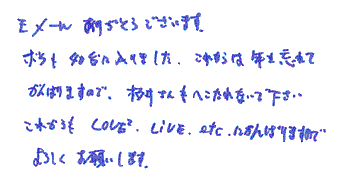 Eメールありがとうございます。
ボクも40台に入りました。これからは年を忘れて
がんばりますので、 さんもへこたれないで下さい
これからも LOVE²、LIVE、etc. にがんばりますので
よろしくお願いします。